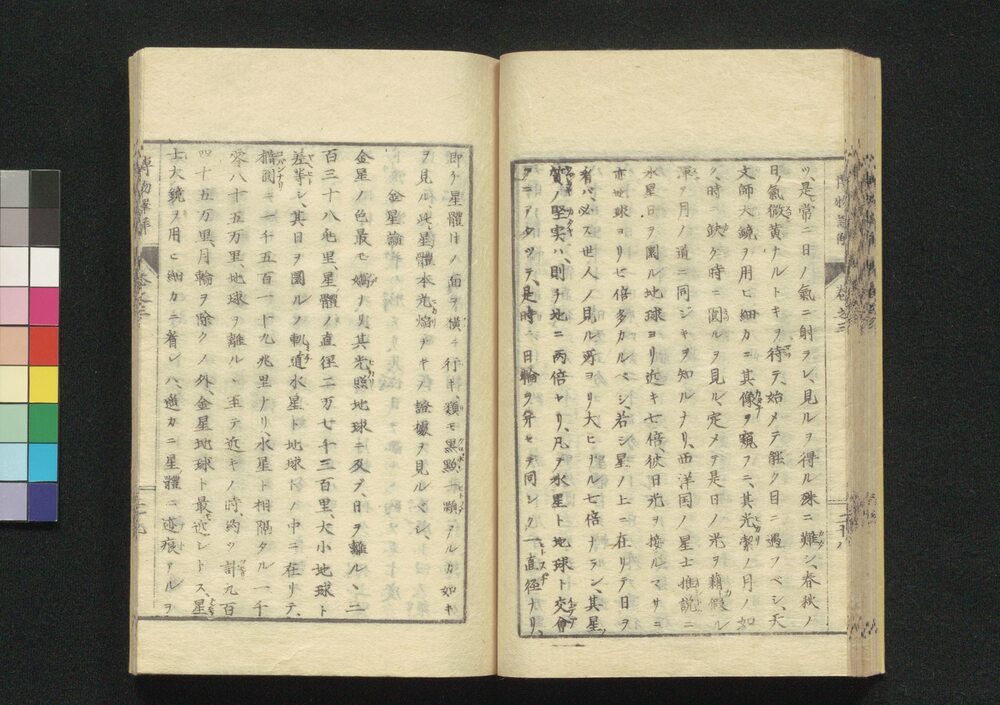 ツ、是常ニ日ノ氣ニ射ラレ、見ルヲ得ル殊ニ難シ、春秋ノ
日、氣微黄ナルトキヲ待テ、始メテ能ク目ニ遇フベシ、天
文師大鏡ヲ用ヒ細カニ其像ヲ窺フニ、其光潔ノ月ノ如
ク、時ニ缺ク時ニ圓ルヲ見ル、定メテ是日ノ光ヲ藉假ル
ヿヲ月ノ道ニ同ジキヲ知ルナリ、西洋国ノ星士惟説ニ
水星日ヲ圜ル地球ヨリ近キ七倍、彼日光ヲ接ルマサニ
亦地球ヨリモ倍多カルベシ、若シ星ノ上ニ在リテ日ヲ
看バ、必ス世人ノ見ル所ヨリ大ヒナル七倍ナラン、其星ノ
質ノ堅実ハ、則チ地ニ両倍セリ、凡ソ水星ト地球ト交會
クニアタツテ、是時ニ日輪ヲ并セテ同シク一直径ナリ、
即チ星體日ノ面ヲ横ニ行キ、類モ黒點ニ顯ヲルカ如キ
ヲ見ル、此星體本光焔ヲキノ證據ヲ見ルベシ、
金星論
金星ノ色最モ嬌ナリ、其光照地球ニ及ブ、日ヲ離ル、二
百三十八兆里、星體ノ直径二万七千三百里、大小地球ト
差等シ、其日ヲ圜ルノ軌道水星ト地球トノ中ニ在リテ、
橢圓ニ一千五百一十九兆里ナリ、水星ト相隔タル一千
零八十五万里、地球ヲ離ル、至テ近キノ時、約ツ計九百
四十五万里、月輪ヲ除クノ外、金星地球ト最近シトス、星
士大鏡ヲ用ヒ細カニ看レハ、適カニ星體ニ迹痕アルヲ
博物
巻之三